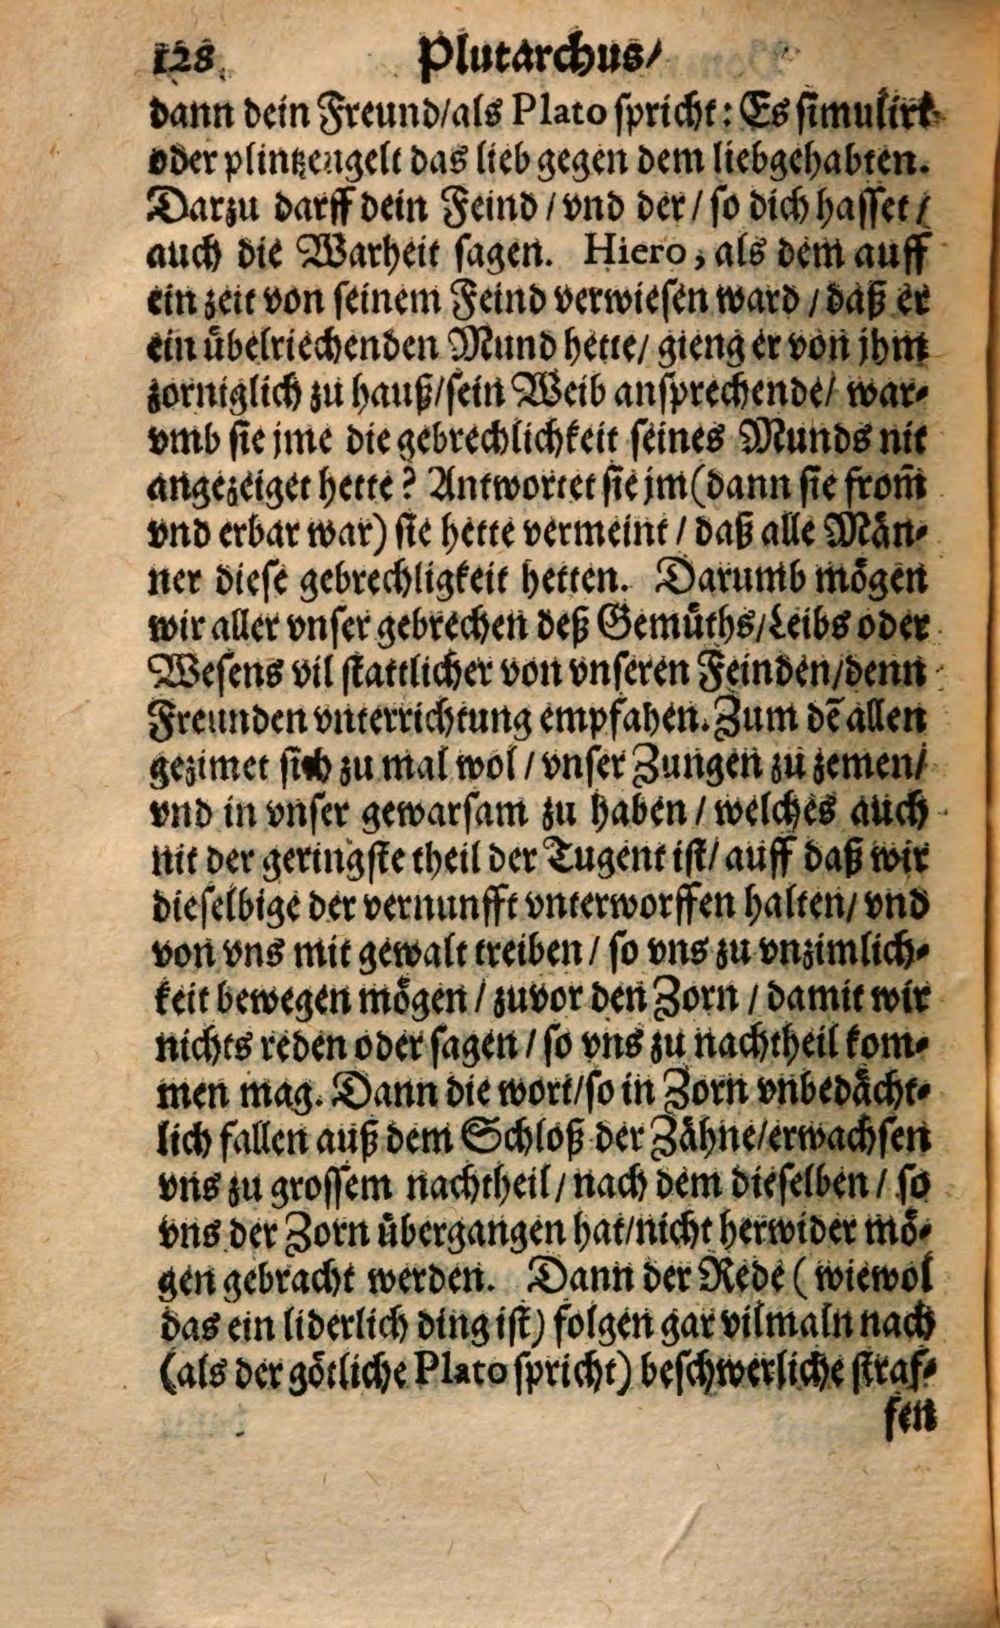 128 Plutarchus/
dann dein Freund/als Plato spricht: Es simulirt
oder plintzengelt das lieb gegen dem liebgehabten.
Darzu darff dein Feind / vnd der / so dich hasset /
auch die Warheit sagen. Hiero, als dem auff
ein zeit von seinem Feind verwiesen ward / daß er
ein übelriechenden Mund hette/ gieng er von jhm
zorniglich zu hauß/sein Weib ansprechende/ war⸗
vmb sie jme die gebrechlichkeit seines Munds nit
angezeiget hette? Antwortet sie jm (dann sie from̃
vnd erbar war) sie hette vermeint / daß alle Män⸗
ner diese gebrechligkeit hetten. Darumb mögen
wir aller vnser gebrechen deß Gemüths/Leibs oder
Wesens vil stattlicher von vnseren Feinden/denn
Freunden vnterrichtung empfahen. Zum dẽ allen
gezimet sich zu mal wol / vnser Zungen zu zemen/
vnd in vnser gewarsam zu haben / welches auch
nit der geringste theil der Tugent ist/ auff daß wir
dieselbige der vernunfft vnterworffen halten/ vnd
von vns mit gewalt treiben / so vns zu vnzimlich⸗
keit bewegen mögen / zuvor den Zorn / damit wir
nichts reden oder sagen / so vns zu nachtheil kom⸗
men mag. Dann die wort/so in Zorn vnbedächt⸗
lich fallen auß dem Schloß der Zähne/erwachsen
vns zu grossem nachtheil / nach dem dieselben / so
vns der Zorn übergangen hat/nicht herwider mö⸗
gen gebracht werden. Dann der Rede ( wiewol
das ein liderlich ding ist) folgen gar vilmaln nach
(als der götliche Plato spricht) beschwerliche straf⸗
fen